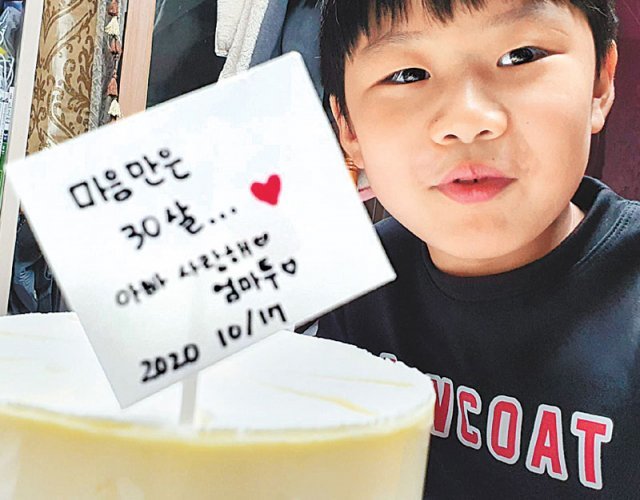 마음만은
30살...♥
아빠 사랑해♡
엄마두♡
2020 10/17
WCOAT